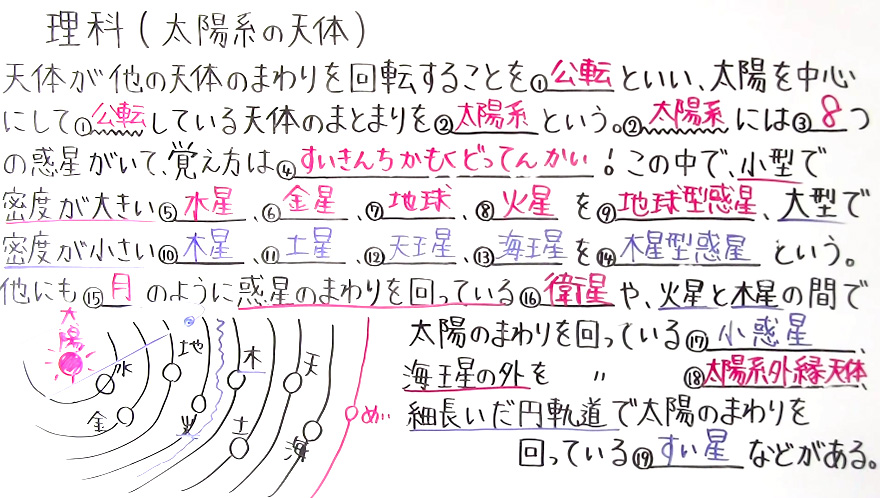 理科(太陽系の天体)
天体が他の天体のまわりを回転することを①公転といい、太陽を中心
にして①公転している天体のまとまりを②太陽系という。②太陽系には③8つ
の惑星がいて、覚え方は④すいきんちかもくどってんかい!この中で、小型で
密度が大きい⑤水星、⑥金星、⑦地球、⑧火星を⑨地球型惑星、大型で
密度が小さい⑩木星、⑪土星、⑫天王星、⑬海王星を⑭木星型惑星という。
他にも⑮月のように惑星のまわりを回っている⑯衛星や、火星と木星の間で
太陽のまわりを回っている⑰小惑星、
海王星の外を 〃 ⑱太陽系外縁天体、
細長いだ円軌道で太陽のまわりを
回っている⑲すい星などがある。
太陽
水
金
地
火
木
土
天
海
めい